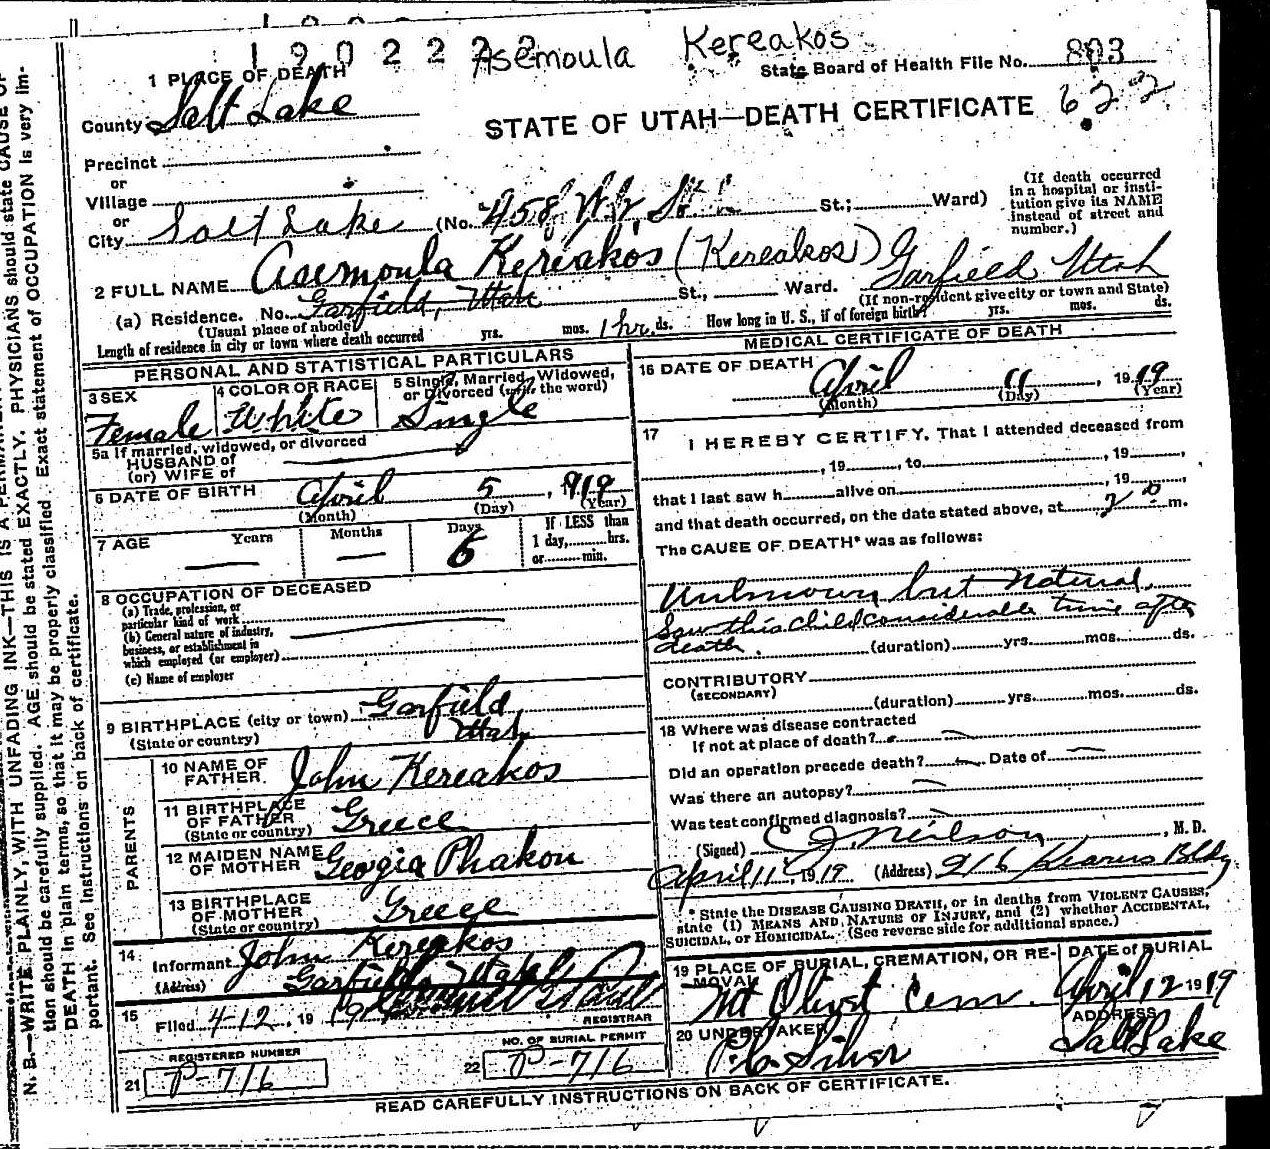 190222
Asemoula Kereakos
State Board of Health File No. 803
1 PLACE OF DEATH
County Salt Lake
STATE OF UTAH—DEATH CERTIFICATE 622
Precinct
or
Village
or
City Salt Lake (No. 458 W 2 St.; Ward)
(If death occurred in a hospital or insti-
tution give its NAME instead of street and number.)
2 FULL NAME Asemoula Kereakos (Kereakos)
(a) Residence. No. Garfield, Utah St., Ward. Garfield Utah
(Usual place of abode) (If non-resident give city or town and State)
Length of residence in city or town where death occurred yrs. mos. 1 hr. ds. How long in U. S., if of foreign birth? yrs. mos. ds.
PERSONAL AND STATISTICAL PARTICULARS
3 SEX Female
4 COLOR OR RACE White
5 Single, Married, Widowed, or Divorced (write the word) Single
5a If married, widowed, or divorced
HUSBAND of
(or) WIFE of
6 DATE OF BIRTH April 5, 1919
(Month) (Day) (Year)
7 AGE Years Months Days 6 If LESS than 1 day, hrs. or min.
8 OCCUPATION OF DECEASED
(a) Trade, profession, or particular kind of work
(b) General nature of industry, business, or establishment in which employed (or employer)
(c) Name of employer
9 BIRTHPLACE (city or town) Garfield
(State or country) Utah
PARENTS
10 NAME OF FATHER John Kereakos
11 BIRTHPLACE OF FATHER (State or country) Greece
12 MAIDEN NAME OF MOTHER Georgia Phakon
13 BIRTHPLACE OF MOTHER (State or country) Greece
14 Informant John Kereakos
(Address) Garfield Utah
15 Filed 4-12, 1919 REGISTRAR
REGISTERED NUMBER
21 P-716
NO. OF BURIAL PERMIT
22 P-716
MEDICAL CERTIFICATE OF DEATH
16 DATE OF DEATH April 11, 1919
(Month) (Day) (Year)
17 I HEREBY CERTIFY, That I attended deceased from
, 19, to , 19,
that I last saw h alive on , 19,
and that death occurred, on the date stated above, at 2 P m.
The CAUSE OF DEATH* was as follows:
Unknown but Natural.
Saw this child considerable time after
death. (duration) yrs. mos. ds.
CONTRIBUTORY
(SECONDARY)
(duration) yrs. mos. ds.
18 Where was disease contracted
If not at place of death?
Did an operation precede death? Date of
Was there an autopsy?
Was test confirmed diagnosis?
(Signed) C J. Neilson, M. D.
April 11, 1919 (Address) 916 Kearns Bldg
* State the DISEASE CAUSING DEATH, or in deaths from VIOLENT CAUSES,
state (1) MEANS AND NATURE OF INJURY, and (2) whether ACCIDENTAL,
SUICIDAL, or HOMICIDAL. (See reverse side for additional space.)
19 PLACE OF BURIAL, CREMATION, OR RE-
MOVAL Mt Olivet Cem.
DATE of BURIAL April, 12 1919
20 UNDERTAKER Silver
ADDRESS Salt Lake
READ CAREFULLY INSTRUCTIONS ON BACK OF CERTIFICATE.
N. B.—WRITE PLAINLY, WITH UNFADING INK—THIS IS A PERMANENT
tion should be carefully supplied. AGE should be stated EXACTLY. PHYSICIANS should state CAUSE OF
DEATH in plain terms, so that it may be properly classified. Exact statement of OCCUPATION is very im-
portant. See Instructions on back of certificate.